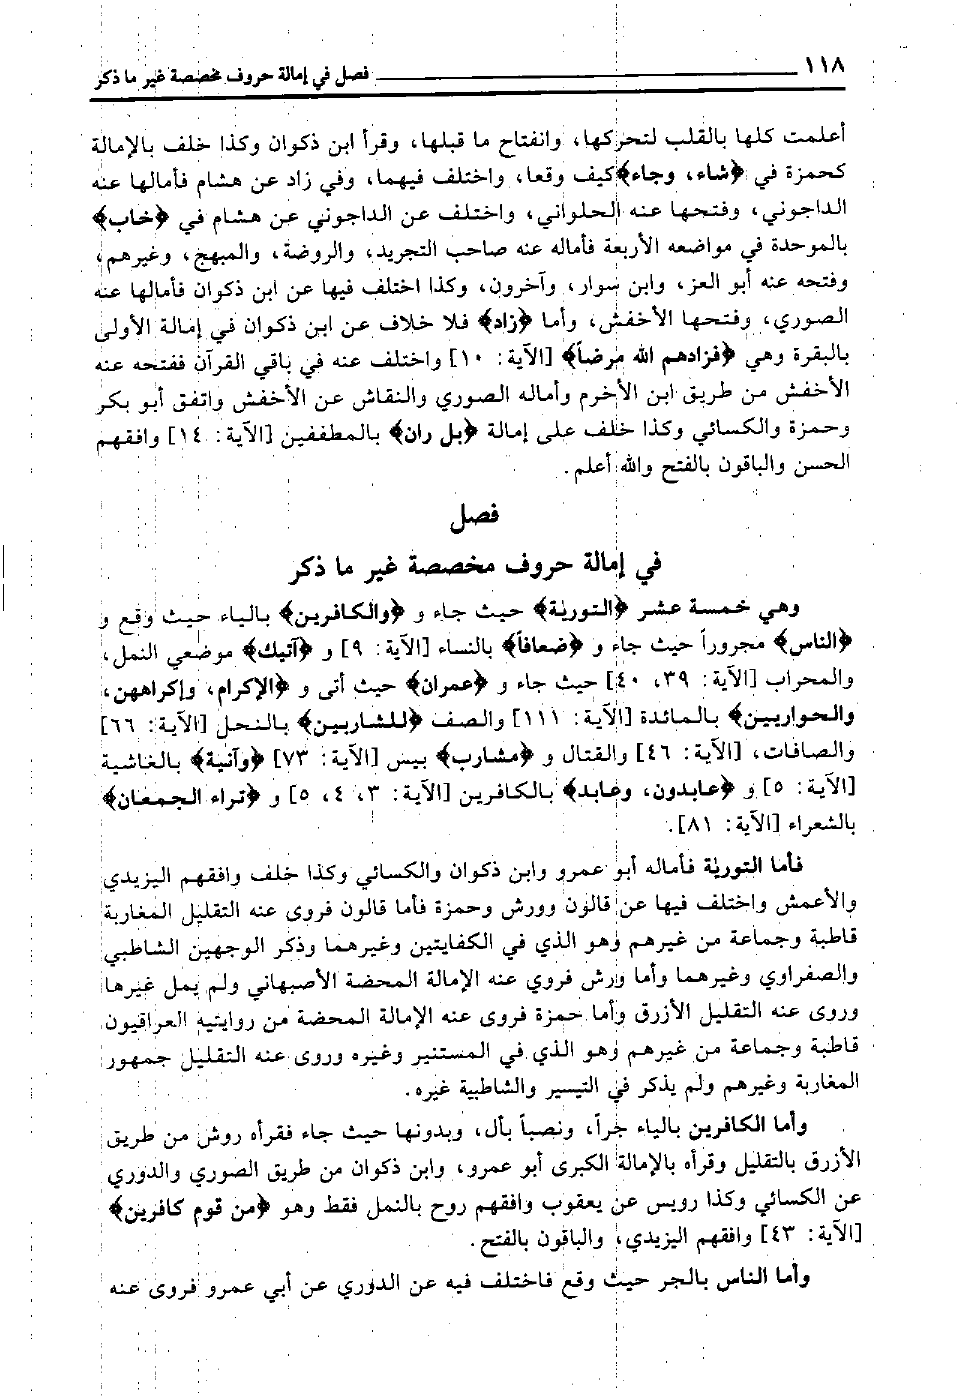 ١١٨ فصل في إمالة حروف مخصصة غير ما ذكر
أعلمت كلها بالقلب لتحركها، وانفتاح ما قبلها، وقرأ ابن ذكوان وكذا خلف بالإمالة
كحمزة في ﴿شاء، وجاء﴾ كيف وقعا، واختلف فيهما، وفي زاد عن هشام فأمالها عنه
الداجوني، وفتحها عنه الحلواني، واختلف عن الداجوني عن هشام في ﴿خاب﴾
بالموحدة في مواضعه الأربعة فأماله عنه صاحب التجريد، والروضة، والمبهج، وغيرهم،
وفتحه عنه أبو العز، وابن سوار، وآخرون، وكذا اختلف فيها عن ابن ذكوان فأمالها عنه
الصوري، وفتحها الأخفش، وأما ﴿زاد﴾ فلا خلاف عن ابن ذكوان في إمالة الأولى
بالبقرة وهي ﴿فزادهم الله مرضاً﴾ [الآية: ١٠] واختلف عنه في باقي القرآن ففتحه عنه
الأخفش من طريق ابن الأخرم وأماله الصوري والنقاش عن الأخفش واتفق أبو بكر
وحمزة والكسائي وكذا خلف على إمالة ﴿بل ران﴾ بالمطففين [الآية: ١٤] وافقهم
الحسن والباقون بالفتح والله أعلم.
فصل
في إمالة حروف مخصصة غير ما ذكر
وهي خمسة عشر ﴿التورية﴾ حيث جاء و ﴿والكافرين﴾ بالياء حيث وقع و
﴿الناس﴾ مجروراً حيث جاء و ﴿ضعافاً﴾ بالنساء [الآية: ٩] و ﴿آتيك﴾ موضعي النمل،
والمحراب [الآية: ٣٩، ٤٠] حيث جاء و ﴿عمران﴾ حيث أتى و ﴿الإكرام، وإكراههن،
والحواريين﴾ بالمائدة [الآية: ١١١] والصف ﴿للشاربين﴾ بالنحل [الآية: ٦٦]
والصافات، [الآية: ٤٦] والقتال و ﴿مشارب﴾ بيس [الآية: ٧٣] ﴿وآنية﴾ بالغاشية
[الآية: ٥] و ﴿عابدون، وعابد﴾ بالكافرين [الآية: ٣، ٤، ٥] و ﴿تراء الجمعان﴾
بالشعراء [الآية: ٨١].
فأما التورية فأماله أبو عمرو وابن ذكوان والكسائي وكذا خلف وافقهم اليزيدي
والأعمش واختلف فيها عن قالون وورش وحمزة فأما قالون فروى عنه التقليل المغاربة
قاطبة وجماعة من غيرهم وهو الذي في الكفايتين وغيرهما وذكر الوجهين الشاطبي
والصفراوي وغيرهما وأما ورش فروي عنه الإمالة المحضة الأصبهاني ولم يمل غيرها
وروى عنه التقليل الأزرق وأما حمزة فروى عنه الإمالة المحضة من روايتيه العراقيون
قاطبة وجماعة من غيرهم وهو الذي في المستنير وغيره وروى عنه التقليل جمهور
المغاربة وغيرهم ولم يذكر في التيسير والشاطبية غيره.
وأما الكافرين بالياء جراً، ونصباً بأل، وبدونها حيث جاء فقرأه روش من طريق
الأزرق بالتقليل وقرأه بالإمالة الكبرى أبو عمرو، وابن ذكوان من طريق الصوري والدوري
عن الكسائي وكذا رويس عن يعقوب وافقهم روح بالنمل فقط وهو ﴿من قوم كافرين﴾
[الآية: ٤٣] وافقهم اليزيدي، والباقون بالفتح.
وأما الناس بالجر حيث وقع فاختلف فيه عن الدوري عن أبي عمرو فروى عنه